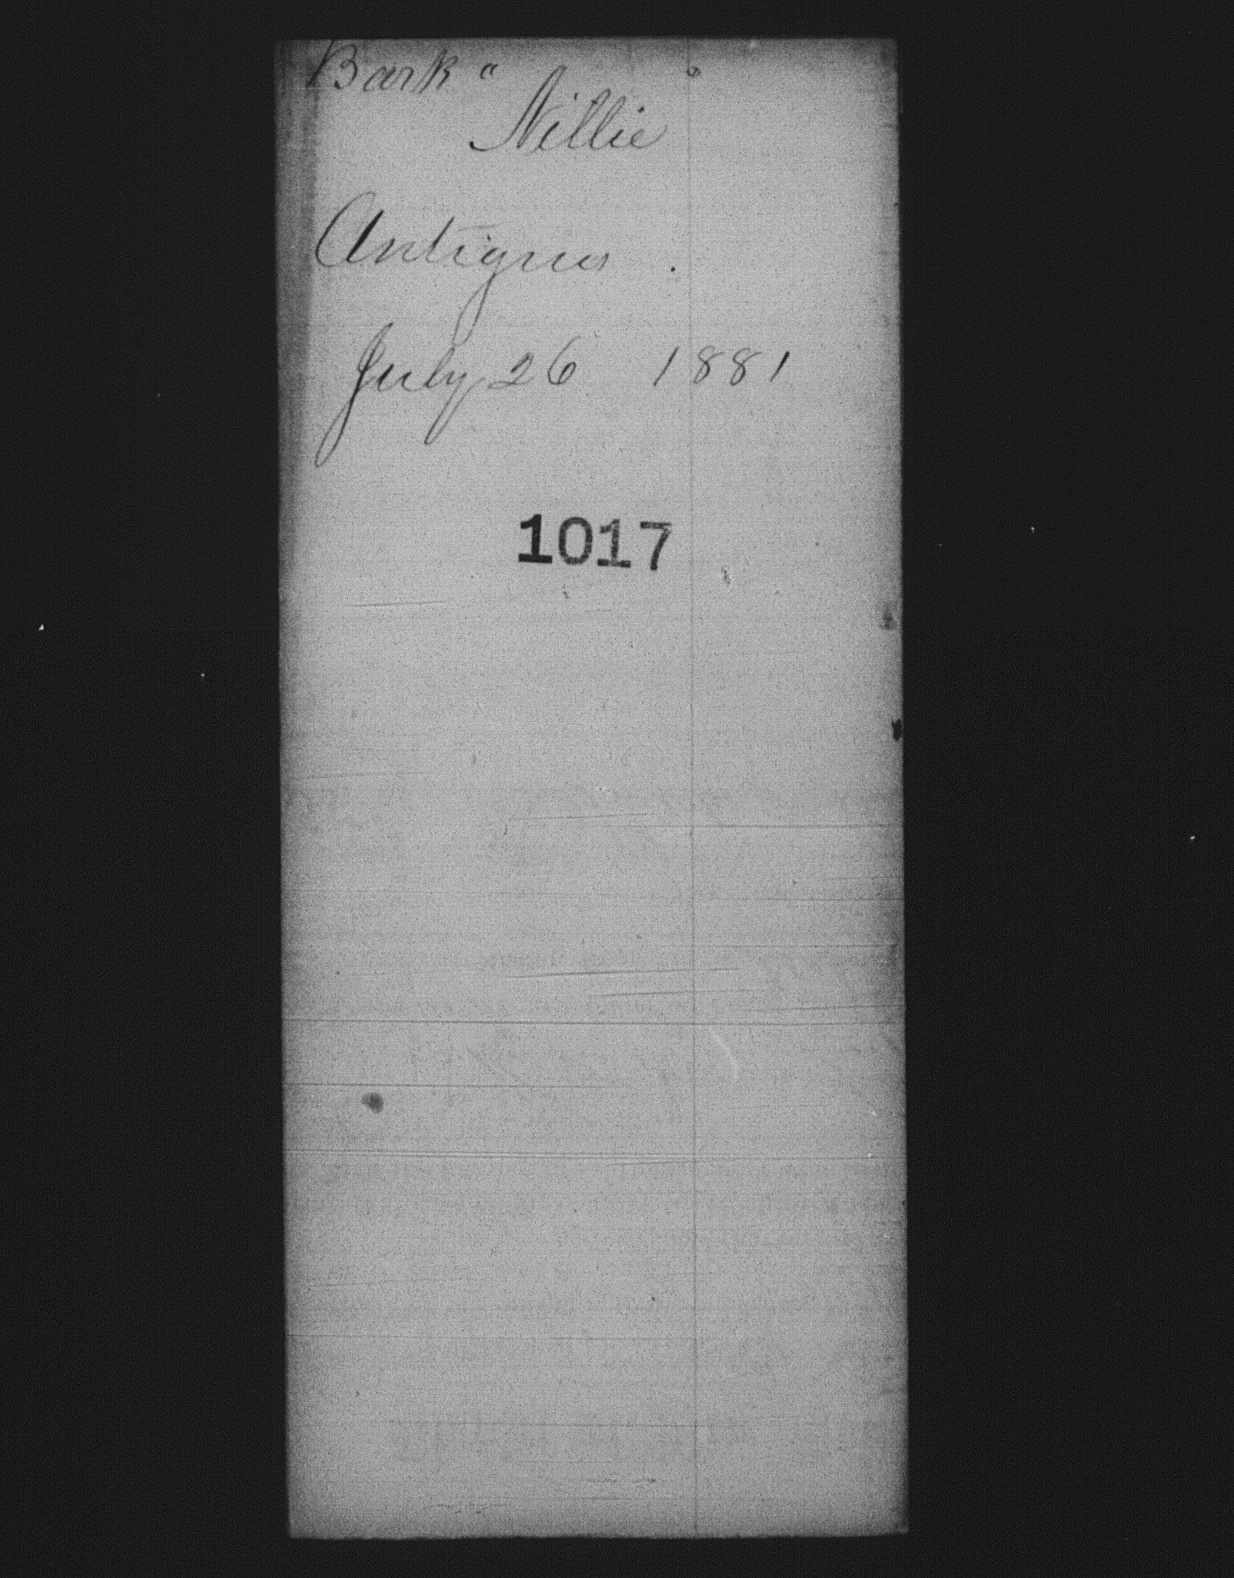 Bark "
Nellie
Antigua .
July 26 1881
1017